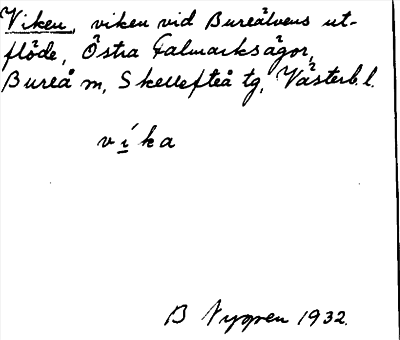 Viken, viken vid Bureälvens ut-
flöde, Östra Falmarksägor,
Bureå m, Skellefteå tg, Västerb. l.
víka
B Nygren 1932.